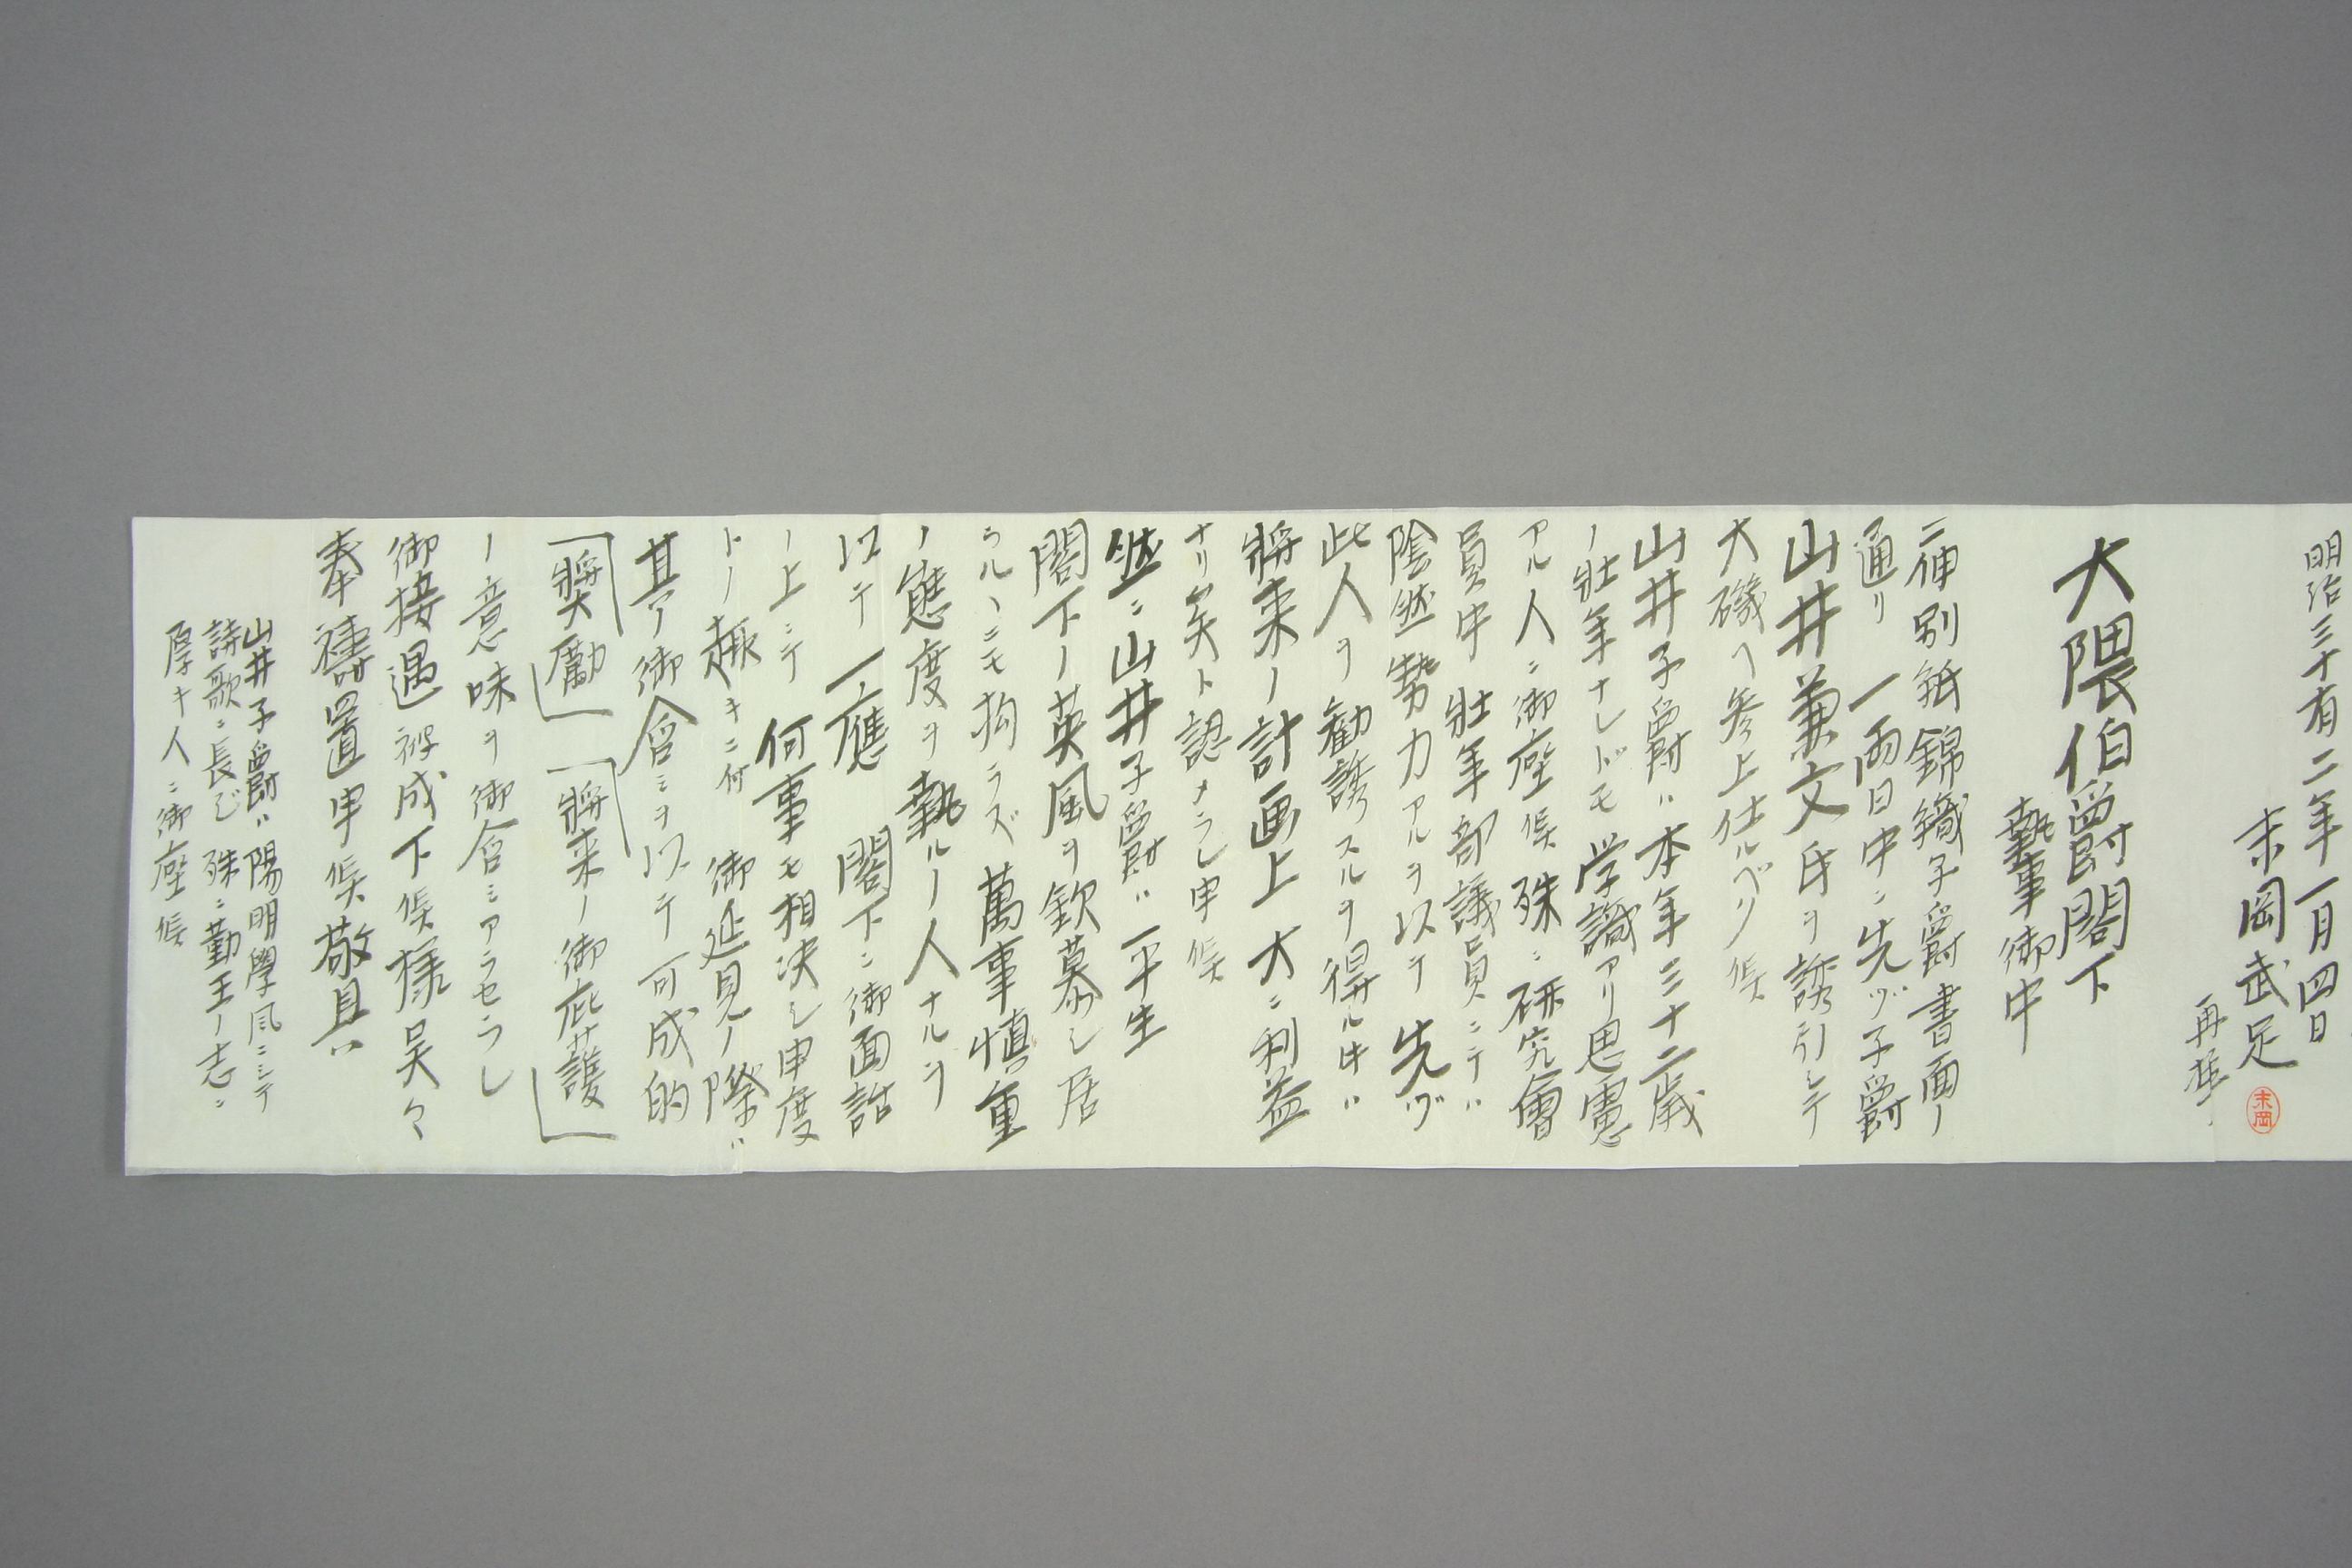 明治三十有二年一月四日
末岡武足
末岡
再拝
大隈伯爵閣下
執事御中
二伸別紙錦織子爵書面ノ
通リ一両日中ニ先ヅ子爵
山井兼文氏ヲ誘引シテ
大磯ヘ参上仕ルベク候
山井子爵ハ本年三十二歳
ノ壮年ナレドモ学識アリ思慮
アル人ニ御座候殊ニ研究會
員中壮年部議員ニテハ
陰然勢力アルヲ以テ先ヅ
此人ヲ勧誘スルヲ得ル時ハ
将来ノ計画上大ニ利益
ナリ矣ト認ナラレ申候
然ニ山井子爵ハ平生
閣下ノ英風ヲ欽慕シ居
ラルヽニモ拘ラズ萬事慎重
ノ態度ヲ執ルノ人ナルヲ
以テ一應閣下ニ御面話
ノ上ニテ何事モ相决シ申度
トノ趣キニ付御延見ノ際ハ
其ア御含ミヲ以テ可成的
「奨勵」「将来ノ御庇護」
ノ意味ヲ御含ミアラセラレ
御接遇被成下候様呉々
奉祷置申候敬具
山井子爵ハ陽明學風ニシテ
詩歌ニ長じ殊ニ勤王ノ志ニ
厚キ人ニ御座候